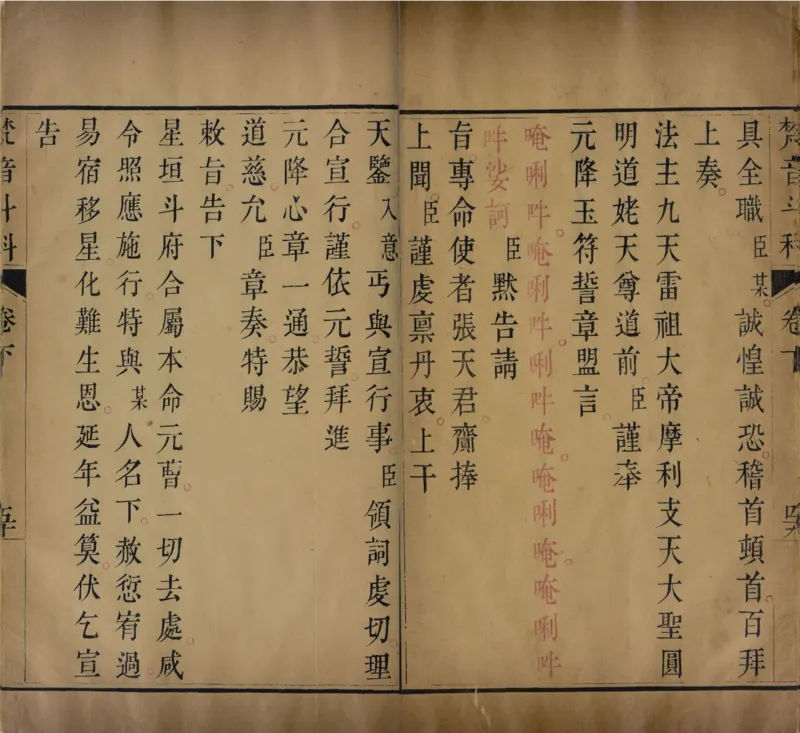 梵音斗科 卷下
具全職臣某。誠惶誠恐。稽首頓首。百拜
上奏。
法主九天雷祖大帝摩利支天大聖圓
明道姥天尊道前。臣謹奉
元降玉符誓章盟言。
唵唎吽。唵唎吽。唎吽唵。唵唎唵。唵唎吽
吽娑訶。臣默告請
旨專命使者張天君。齎捧
上聞。臣謹虔禀丹衷。上干
天鑒入意丐與宣行事。臣領詞虔切。理
合宣行。謹依元誓。拜進
元降心章一通。恭望
道慈。允臣章奏。特賜
敕旨。告下
星垣斗府合屬本命元曺。一切去處。咸
令照應施行。特與某人名下。赦愆宥過。
易宿移星。化難生恩。延年益筭。伏乞宣
告
梵音斗科 卷下 五十